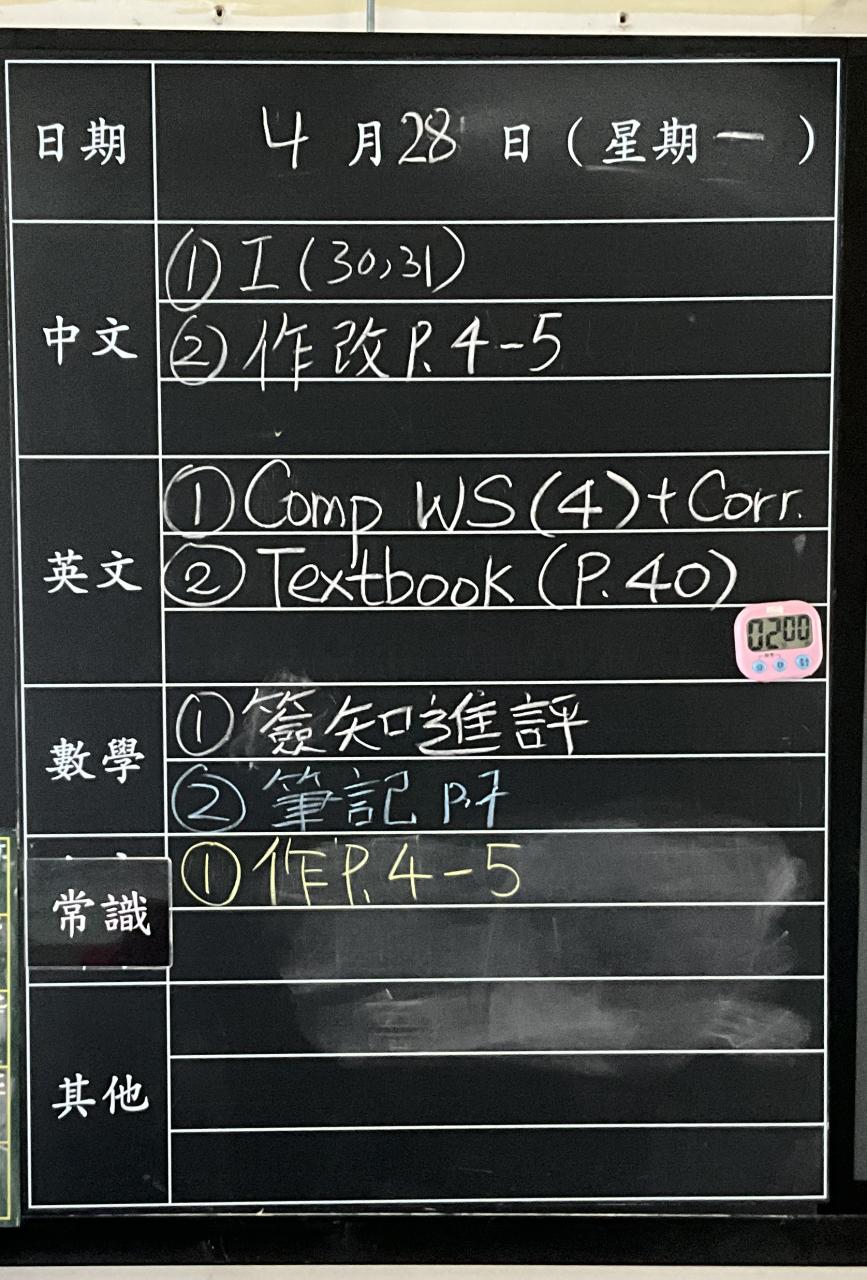 日期 4月28日(星期一)
中文 ①工(30,31)
②作改P.4-5
英文 ①Comp WS(4)+Corr.
②Textbook(P.40)
0200
數學 ①簽知進評
②筆記 P.7
常識 ①作P.4-5
其他